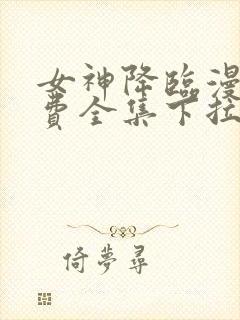 女神降臨漫
費全集下拉
倚夢尋